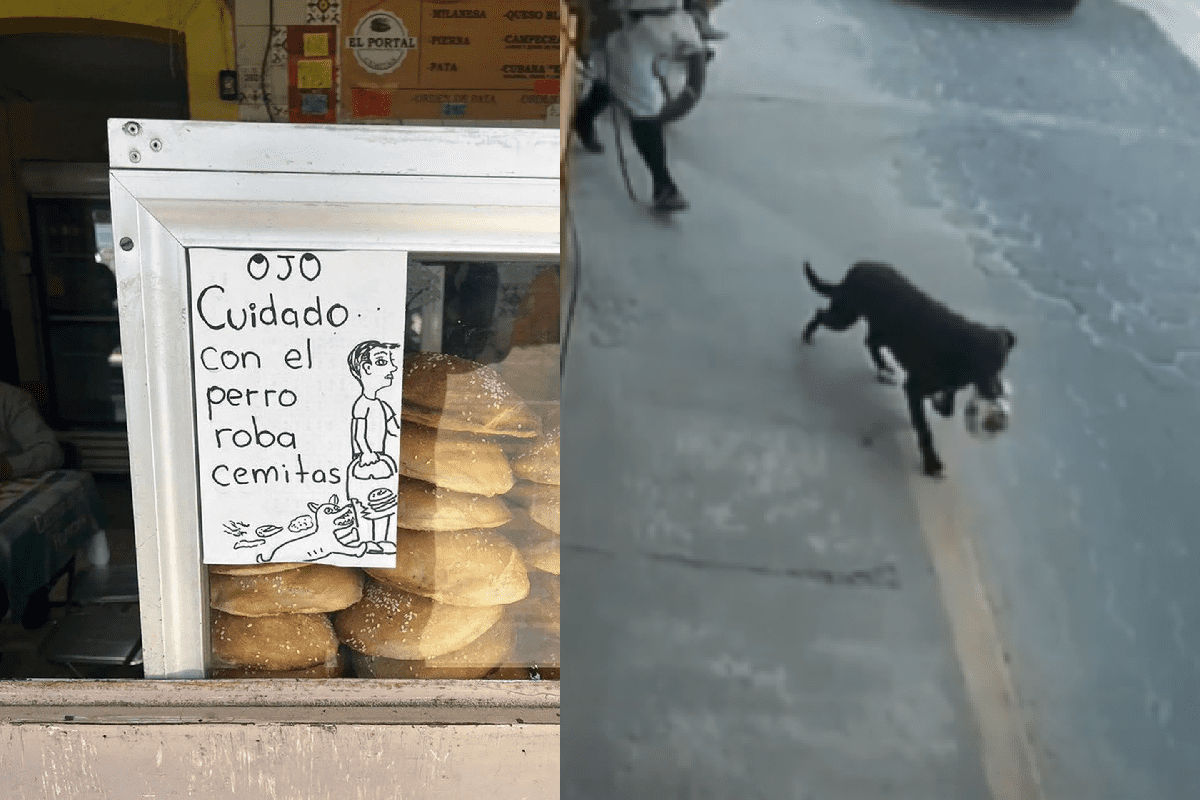 EL PORTAL
-MILANESA
-PIERNA
-PATA
-CAMPECHA
-CUBANA "E
-ORDEN DE PATA
OJO
Cuidado
con el
perro
roba
cemitas